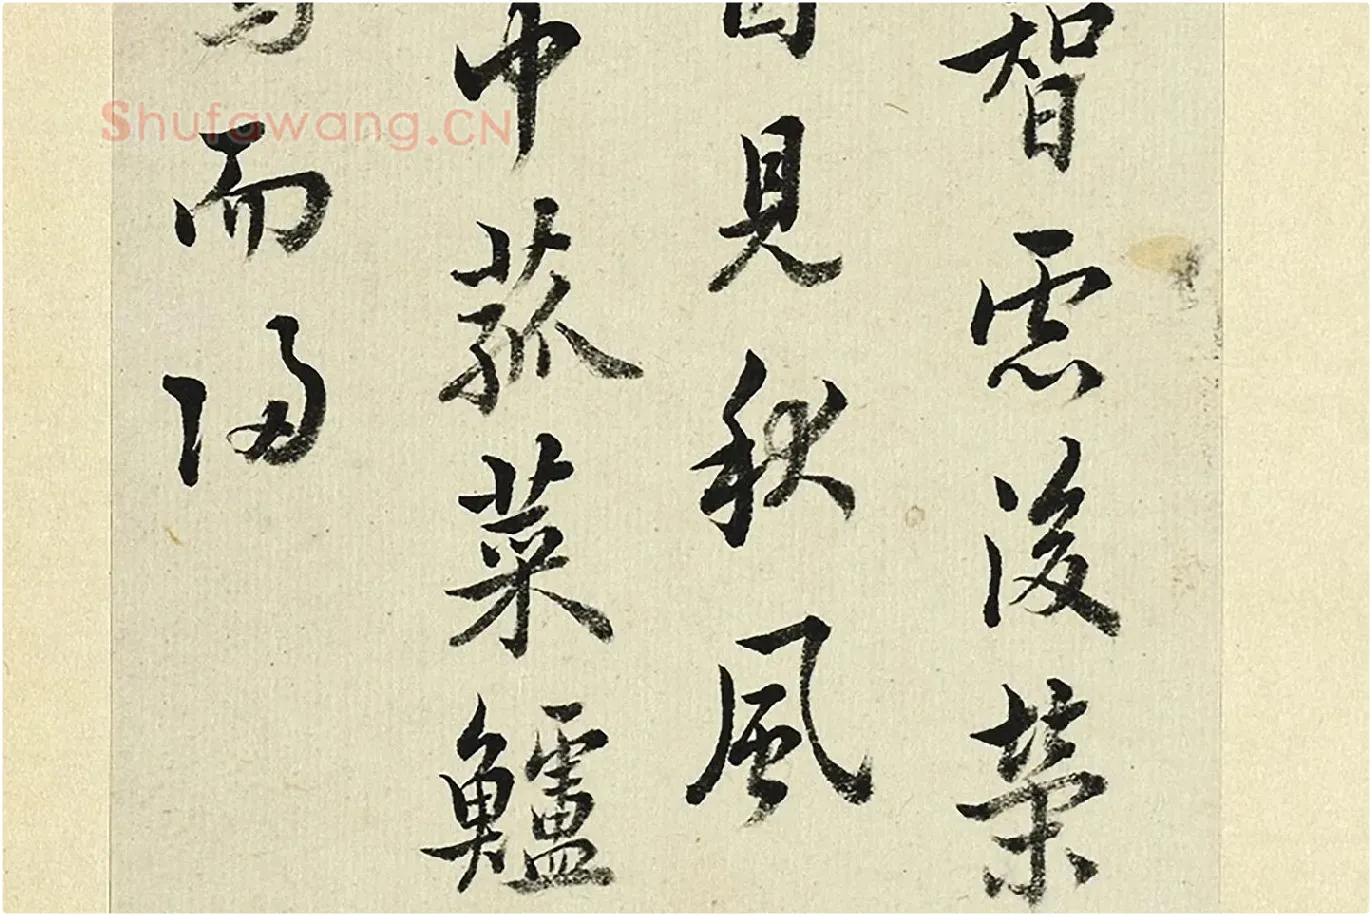 智慮後榮
見秋風
中菰菜鱸
而歸
Shufawang.CN